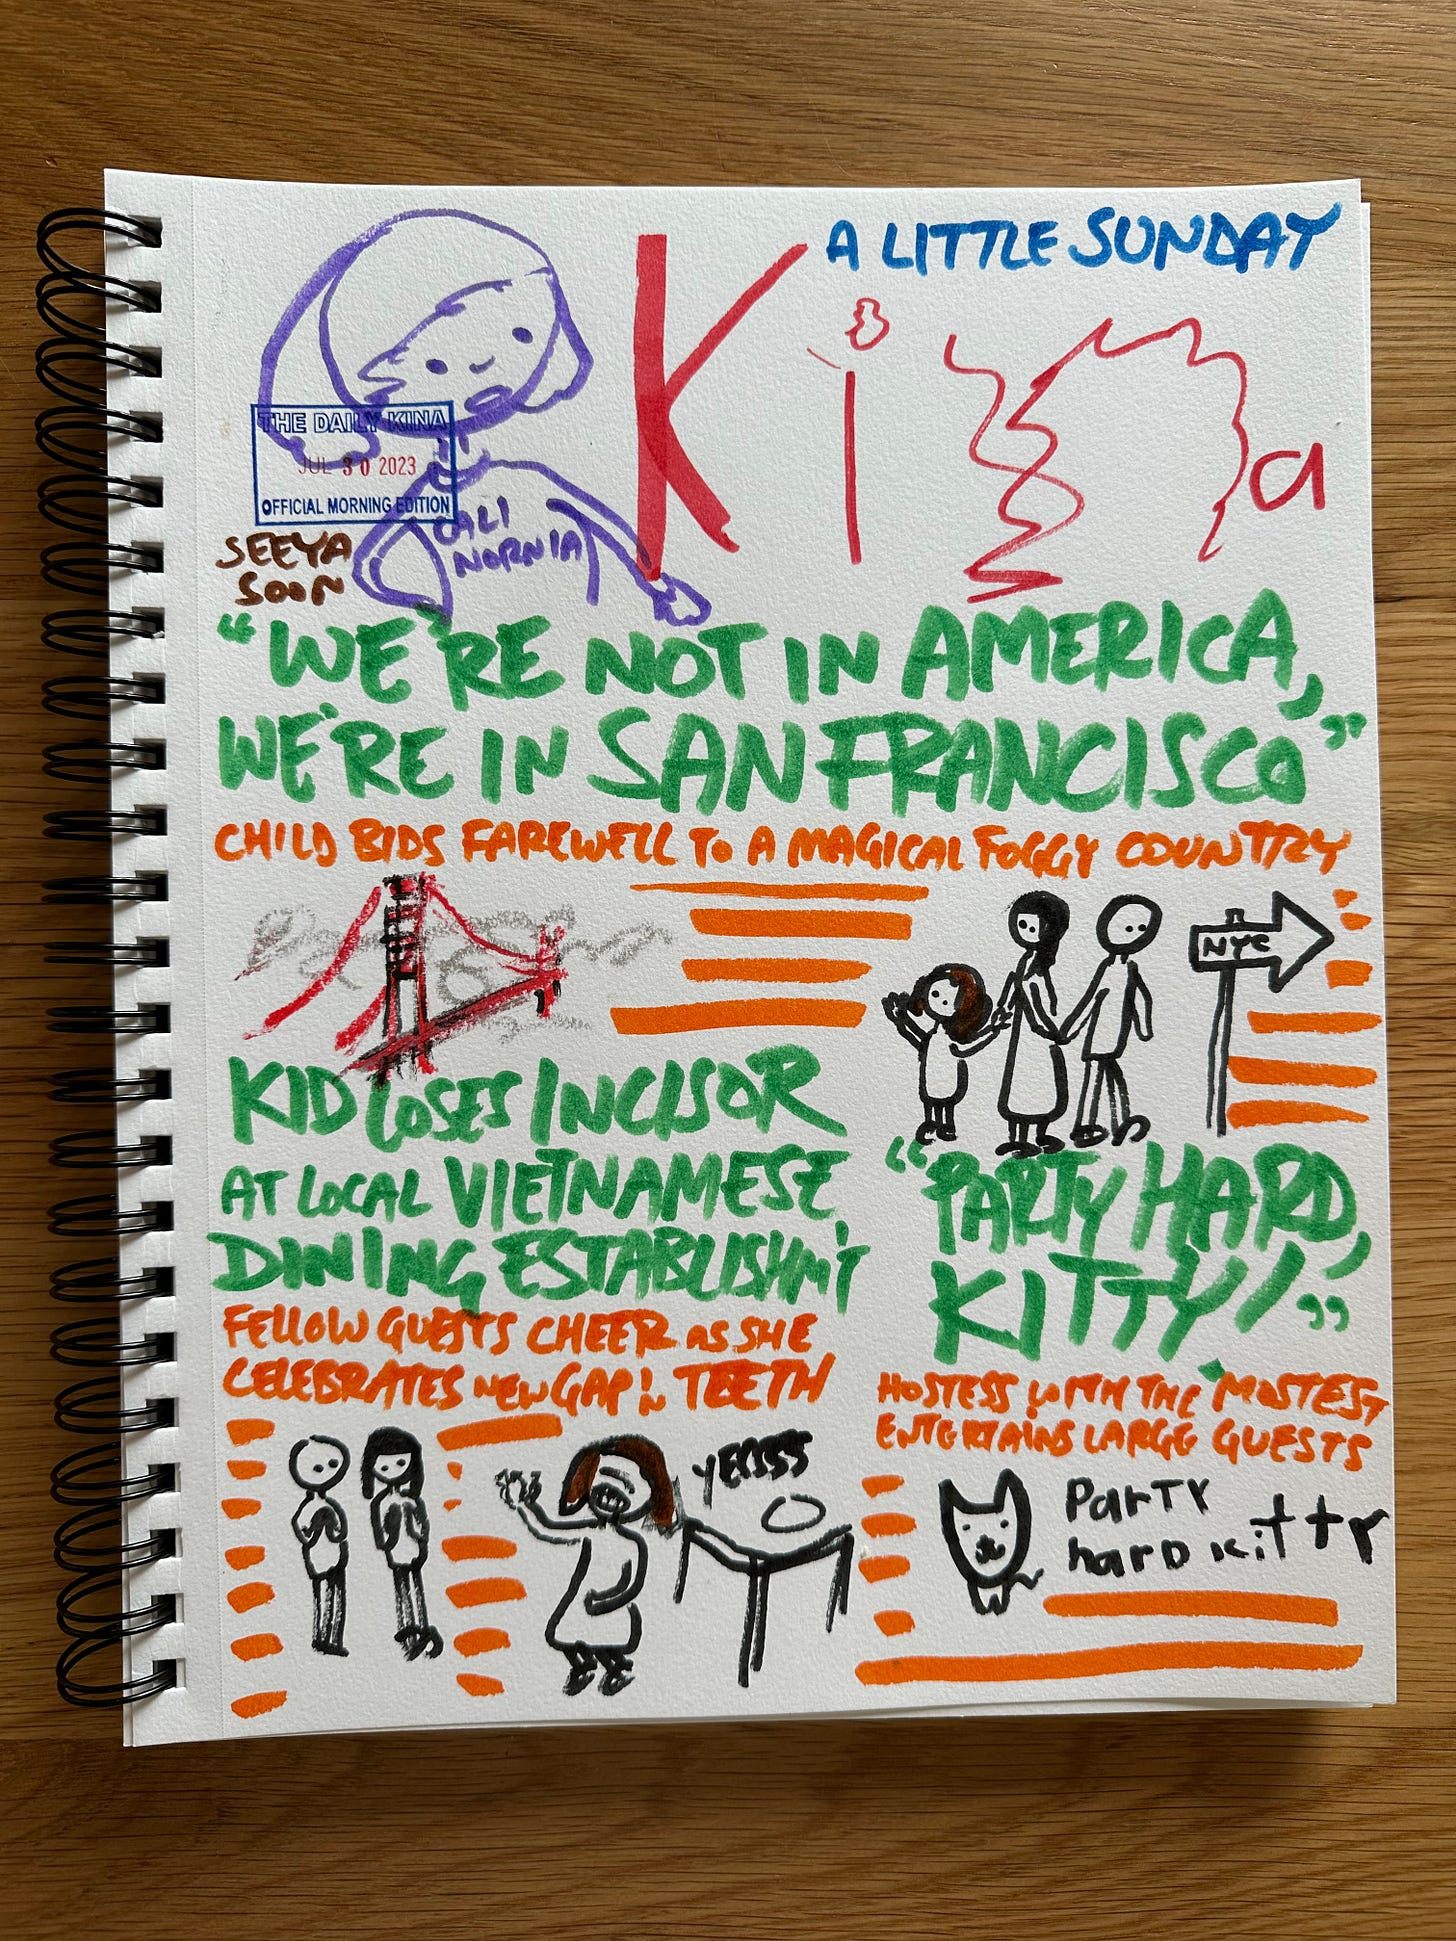 A LITTLE SUNDAY
Kina
THE DAILY KINA
JUL 30 2023
OFFICIAL MORNING EDITION
CALI
NORNIA
SEEYA
SOON
"WE'RE NOT IN AMERICA,
WE'RE IN SAN FRANCISCO"
CHILD BIDS FAREWELL TO A MAGICAL FOGGY COUNTRY
NYC
KID LOSES INCISOR
AT LOCAL VIETNAMESE
DINING ESTABLISHM'T
FELLOW GUESTS CHEER AS SHE
CELEBRATES NEW GAP IN TEETH
YEISSS
"PARTY HARD,
KITTY!"
HOSTESS WITH THE MOSTEST
ENTERTAINS LARGE GUESTS
ParTY
harD Kitty